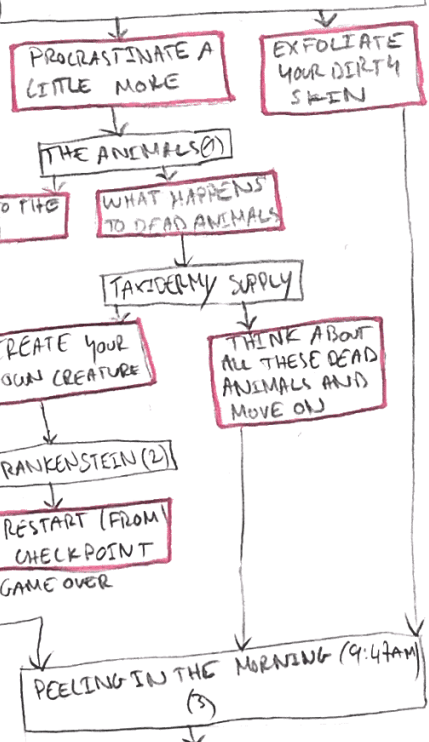 PROCRASTINATE A
LITTLE MORE
EXFOLIATE
YOUR DIRTY
SKIN
THE ANIMALS(1)
O THE
WHAT HAPPENS
TO DEAD ANIMALS
TAXIDERMY SUPPLY
REATE YOUR
OWN CREATURE
THINK ABOUT
ALL THESE DEAD
ANIMALS AND
MOVE ON
RANKENSTEIN(2)
RESTART (FROM)
CHECKPOINT
GAME OVER
PEELING IN THE MORNING (9:47AM)
(3)